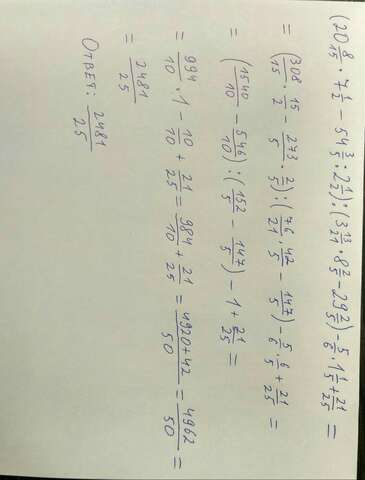 (20 8/15 · 7 1/2 − 54 3/5 : 2 1/2) : (3 13/21 · 8 2/5 − 29 2/5) − 5/6 · 1 1/5 + 21/25 =
= (308/15 · 15/2 − 273/5 · 2/5) : (76/21 · 42/5 − 147/5) − 5/6 · 6/5 + 21/25 =
= (1540/10 − 546/10) : (152/5 − 147/5) − 1 + 21/25 =
= 994/10 · 1 − 10/10 + 21/25 = 984/10 + 21/25 = 4920+42/50 = 4962/50 =
= 2481/25
Ответ: 2481/25